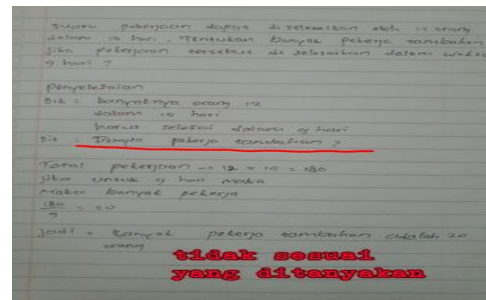 suatu pekerjaan dapat di selesaikan oleh 12 orang
dalam 15 hari. Tentukan banyak pekerja tambahan
jika pekerjaan tersebut di selesaikan dalam waktu
9 hari ?
penyelesaian
Dik = banyaknya orang 12
dalam 15 hari
harus selesai dalam 9 hari
Dit = pekerja tambahan ?
Total pekerjaan → 12 x 15 = 180
jika untuk 9 hari maka
Maka banyak pekerja
180/9 = 20
jadi = banyak pekerja tambahan adalah 20
orang
tidak sesuai
yang ditanyakan